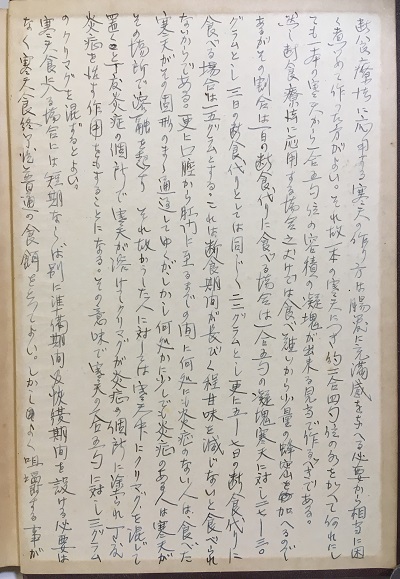 断食療法に応用する寒天の作り方は腸管に充満感を与へる必要から相当に固
く煮つめて作った方がよい。それ故一本の寒天につき約二合四勺位の水をかへて何れにし
ても一本の寒天から一合五勺位の容積の凝塊が出来る見当で作るべきである。
然し断食療法に応用する場合之だけでは食べ難いから少量の蜂蜜を加へるので
あるがその割合は一日の断食代りに食べる場合は一合五勺の凝塊寒天に対し一七—三〇
グラムとし二三日の断食代りとしては同じく二三グラムとし更に五—七日の断食代りに
食べる場合は一五グラムとする。これは断食期間が長びく程甘味を減じないと食べられ
ないからである。更に口腔から肛門に至るまでの間に何処にも炎症のない人は、食べた
寒天がその固形のまゝ通過してゆくがしかし何処かに少しでも炎症のある人は寒天が
その場所で溶融を起す それ故かうした人に対しては寒天中にクリマグを混じて
置くと丁度炎症の個所で寒天が溶けクリマグが炎症の個所に塗られ丁度
炎症を治す作用をもすることになる。その意味で寒天の一合五勺に対し三グラム
のクリマグを混ずるとよい。
寒天食による場合には短期ならば別に準備期間及恢復期間を設ける必要は
なく寒天食終了後普通の食餌をとってよい。しかしよく咀嚼する事が